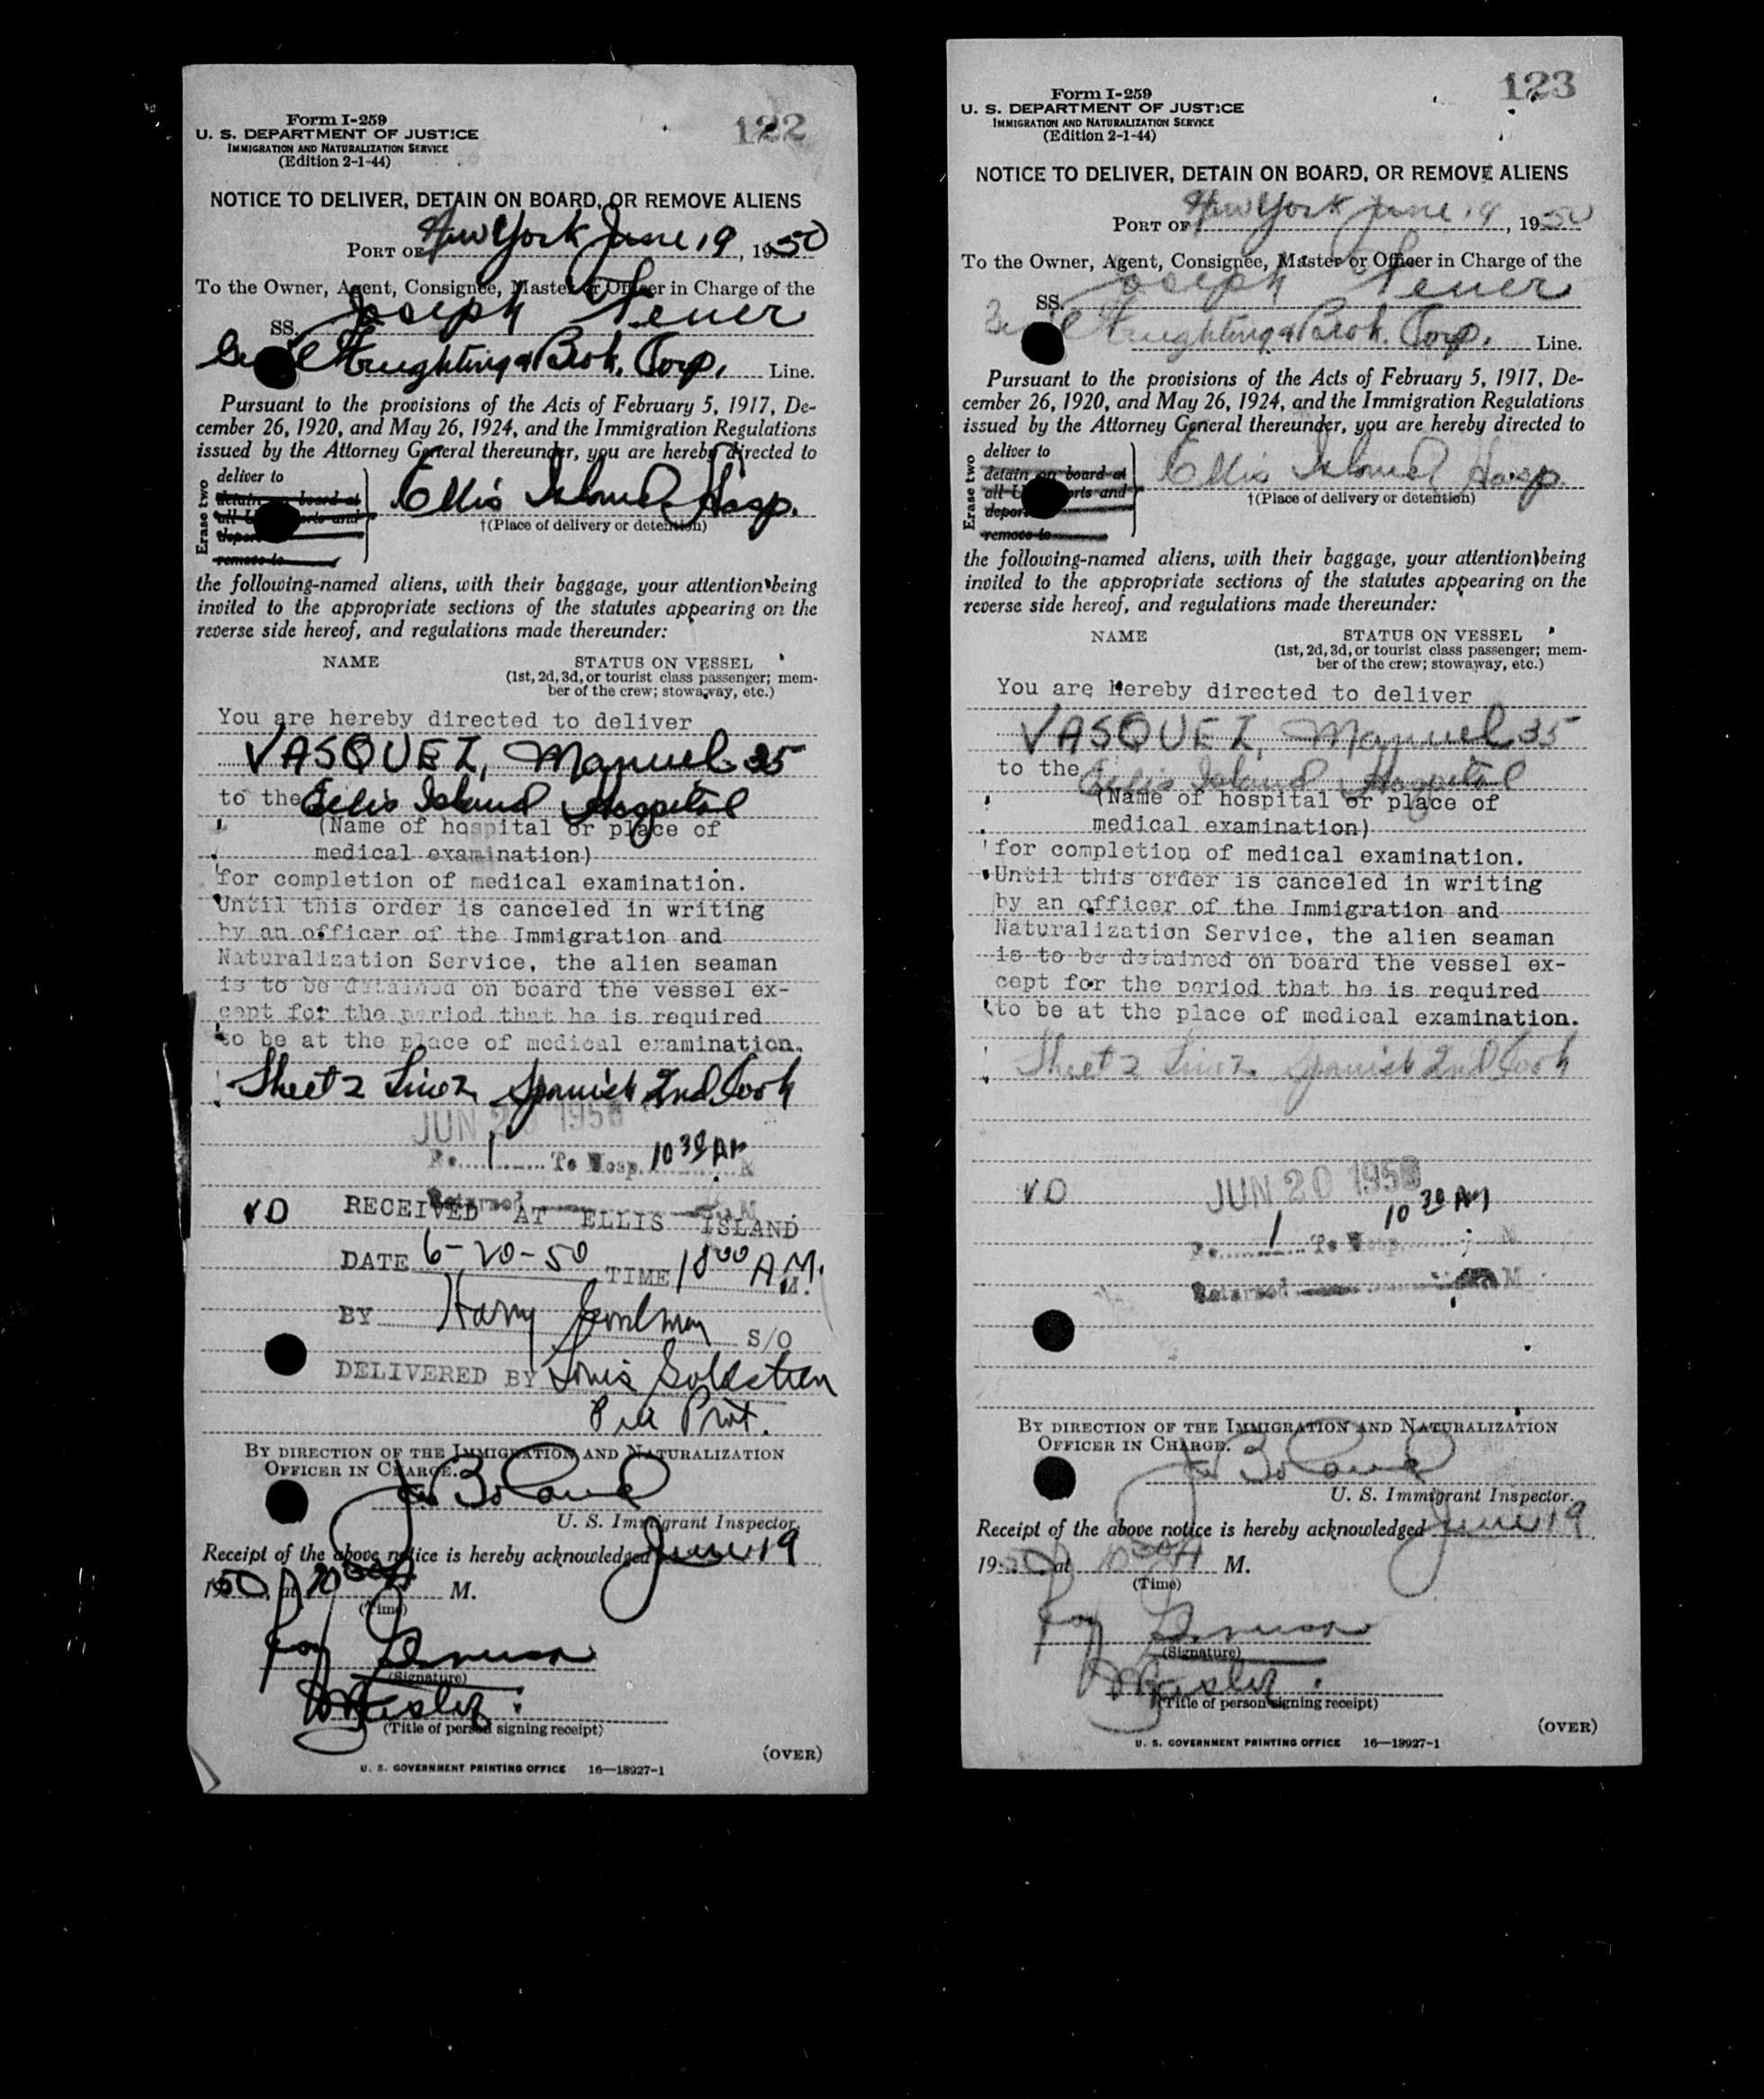 122
Form I-259
U. S. DEPARTMENT OF JUSTICE
IMMIGRATION AND NATURALIZATION SERVICE
(Edition 2-1-44)
NOTICE TO DELIVER, DETAIN ON BOARD, OR REMOVE ALIENS
PORT OF New York June 19, 1950
To the Owner, Agent, Consignee, Master or Officer in Charge of the
SS. Joseph Feuer
Corp. Line.
Pursuant to the provisions of the Acts of February 5, 1917, De-
cember 26, 1920, and May 26, 1924, and the Immigration Regulations
issued by the Attorney General thereunder, you are hereby directed to
Erase two
deliver to
detain on board at
Ellis Island Hosp.
†(Place of delivery or detention)
remove to
the following-named aliens, with their baggage, your attention being
invited to the appropriate sections of the statutes appearing on the
reverse side hereof, and regulations made thereunder:
NAME STATUS ON VESSEL
(1st, 2d, 3d, or tourist class passenger; mem-
ber of the crew; stowaway, etc.)
You are hereby directed to deliver
VASQUEZ, Manuel 35
to the Ellis Island Hospital
(Name of hospital or place of
medical examination)
for completion of medical examination.
Until this order is canceled in writing
by an officer of the Immigration and
Naturalization Service, the alien seaman
is to be detained on board the vessel ex-
cept for the period that he is required
to be at the place of medical examination.
Sheet 2 Line 2 Spanish 2nd Cook
JUN 20 1950
1 To Hosp. 10 30 AM
Returned M
VD RECEIVED AT ELLIS ISLAND
DATE 6-20-50 TIME 10 00 A.M.
BY Harry S/O
DELIVERED BY Louis
BY DIRECTION OF THE IMMIGRATION AND NATURALIZATION
OFFICER IN CHARGE.
U. S. Immigrant Inspector.
Receipt of the above notice is hereby acknowledged June 19
1950, at M.
(Time)
(Signature)
(Title of person signing receipt)
(OVER)
U. S. GOVERNMENT PRINTING OFFICE 16—18927-1
123
Form I-259
U. S. DEPARTMENT OF JUSTICE
IMMIGRATION AND NATURALIZATION SERVICE
(Edition 2-1-44)
NOTICE TO DELIVER, DETAIN ON BOARD, OR REMOVE ALIENS
PORT OF New York June 19, 1950
To the Owner, Agent, Consignee, Master or Officer in Charge of the
SS. Joseph Feuer
Corp. Line.
Pursuant to the provisions of the Acts of February 5, 1917, De-
cember 26, 1920, and May 26, 1924, and the Immigration Regulations
issued by the Attorney General thereunder, you are hereby directed to
Erase two
deliver to
detain on board at
Ellis Island Hosp.
†(Place of delivery or detention)
remove to
the following-named aliens, with their baggage, your attention being
invited to the appropriate sections of the statutes appearing on the
reverse side hereof, and regulations made thereunder:
NAME STATUS ON VESSEL
(1st, 2d, 3d, or tourist class passenger; mem-
ber of the crew; stowaway, etc.)
You are hereby directed to deliver
VASQUEZ, Manuel 35
to the Ellis Island Hospital
(Name of hospital or place of
medical examination)
for completion of medical examination.
Until this order is canceled in writing
by an officer of the Immigration and
Naturalization Service, the alien seaman
is to be detained on board the vessel ex-
cept for the period that he is required
to be at the place of medical examination.
Sheet 2 Line 2 Spanish 2nd Cook
VD JUN 20 1950
10 30 AM
1 To Hosp. M
Returned M
BY DIRECTION OF THE IMMIGRATION AND NATURALIZATION
OFFICER IN CHARGE.
U. S. Immigrant Inspector.
Receipt of the above notice is hereby acknowledged June 19
1950, at M.
(Time)
(Signature)
(Title of person signing receipt)
(OVER)
U. S. GOVERNMENT PRINTING OFFICE 16—18927-1